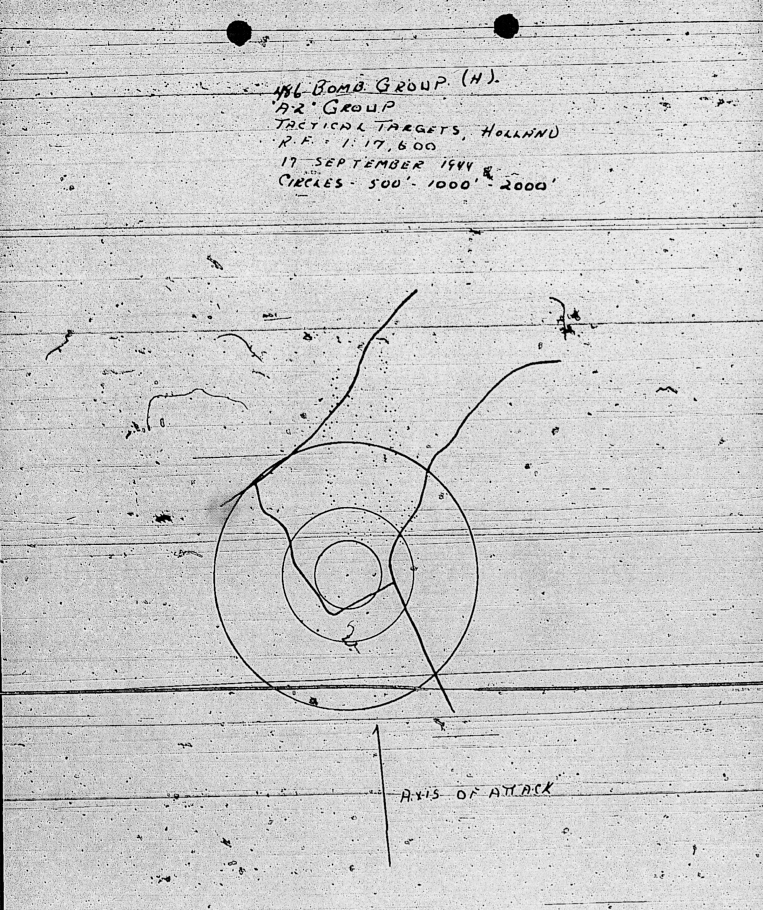 486 BOMB GROUP (H).
"A-2" GROUP
TACTICAL TARGETS, HOLLAND
R.F. = 1:17,600
17 SEPTEMBER 1944
CIRCLES - 500' - 1000' - 2000'
AXIS OF ATTACK